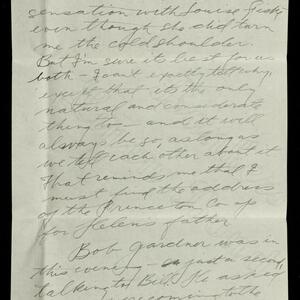 sensation with Louise Fiske
even though she did turn
me the cold shoulder.
But I'm sure it is best for us
both – I can't exactly tell why,
except that its the only
natural and considerate
thing to – and it will
always be so, as long as
we tell each other about it
That reminds me that I
must find the address
of the Princeton Co-op
for Helens father
Bob Gardner was in
this evening – just a second,
talking to Bill. He asked
coming to the